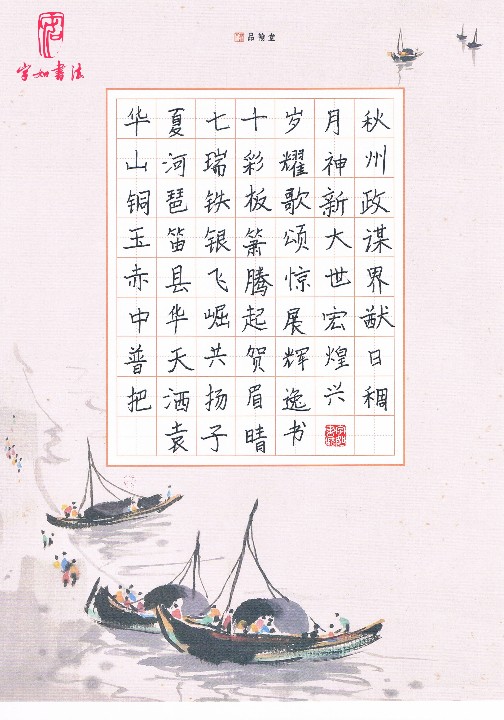 字如書法
华夏七十岁月秋
山河瑞彩耀神州
铜琶铁板歌新政
玉笛银箫颂大谋
赤县飞腾惊世界
中华崛起展宏猷
普天共贺辉煌日
把酒扬眉逸兴稠
袁子晴书